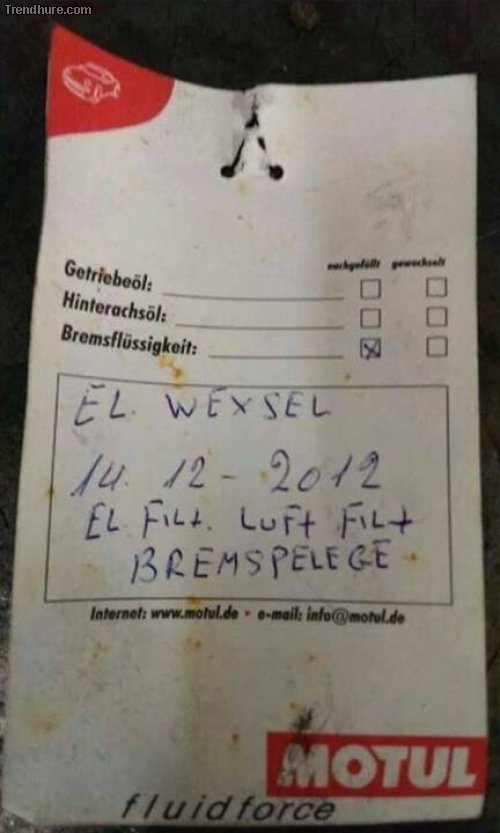 Trendhure.com
nachgefüllt gewechselt
Getriebeöl:
Hinterachsöl:
Bremsflüssigkeit:
EL. WEXSEL
14. 12 - 2012
EL FILt. LUFt FILt
BREMSPELEGE
Internet: www.motul.de • e-mail: info@motul.de
MOTUL
fluidforce